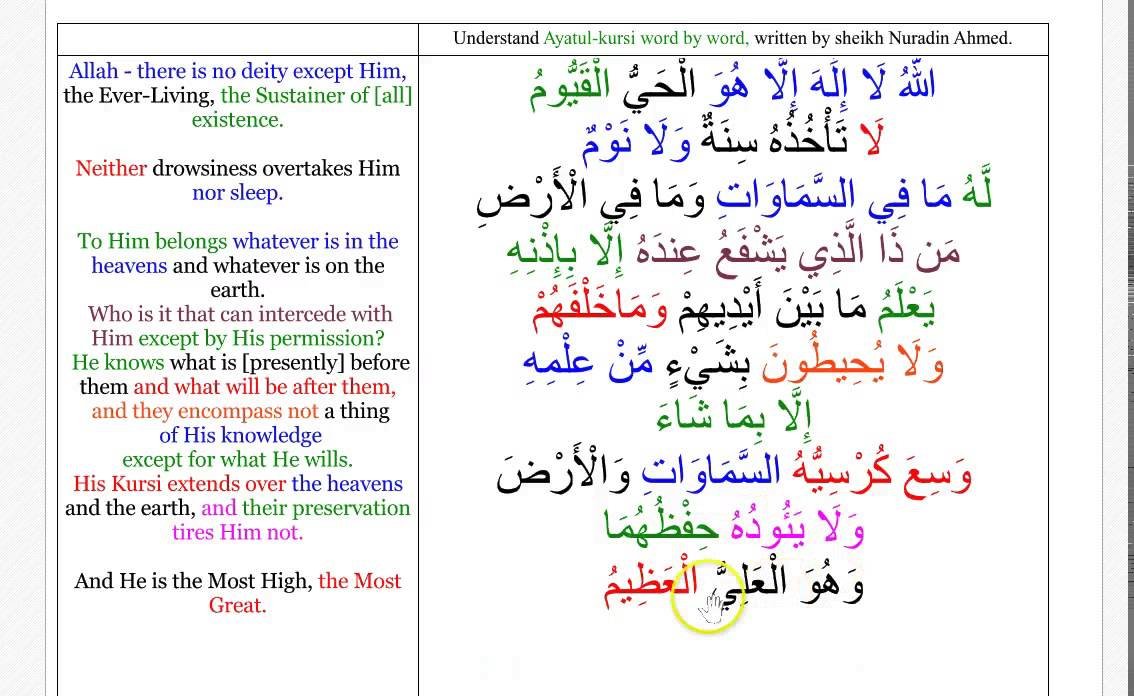 Understand Ayatul-kursi word by word, written by sheikh Nuradin Ahmed.
Allah - there is no deity except Him,
the Ever-Living, the Sustainer of [all]
existence.
Neither drowsiness overtakes Him
nor sleep.
To Him belongs whatever is in the
heavens and whatever is on the
earth.
Who is it that can intercede with
Him except by His permission?
He knows what is [presently] before
them and what will be after them,
and they encompass not a thing
of His knowledge
except for what He wills.
His Kursi extends over the heavens
and the earth, and their preservation
tires Him not.
And He is the Most High, the Most
Great.
اللَّهُ لَا إِلَهَ إِلَّا هُوَ الْحَيُّ الْقَيُّومُ
لَا تَأْخُذُهُ سِنَةٌ وَلَا نَوْمٌ
لَّهُ مَا فِي السَّمَاوَاتِ وَمَا فِي الْأَرْضِ
مَن ذَا الَّذِي يَشْفَعُ عِندَهُ إِلَّا بِإِذْنِهِ
يَعْلَمُ مَا بَيْنَ أَيْدِيهِمْ وَمَاخَلْفَهُمْ
وَلَا يُحِيطُونَ بِشَيْءٍ مِّنْ عِلْمِهِ
إِلَّا بِمَا شَاءَ
وَسِعَ كُرْسِيُّهُ السَّمَاوَاتِ وَالْأَرْضَ
وَلَا يَئُودُهُ حِفْظُهُمَا
وَهُوَ الْعَلِيُّ الْعَظِيمُ